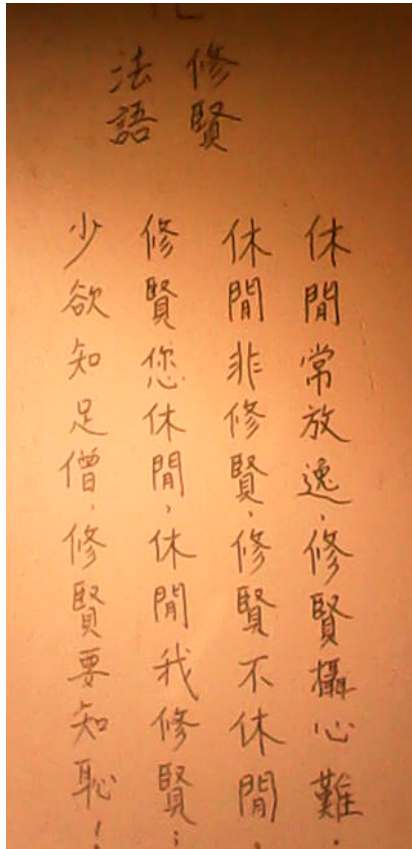 修賢
法語
休閒常放逸，修賢攝心難，
休閒非修賢，修賢不休閒，
修賢您休閒，休閒我修賢；
少欲知足僧，修賢要知恥！